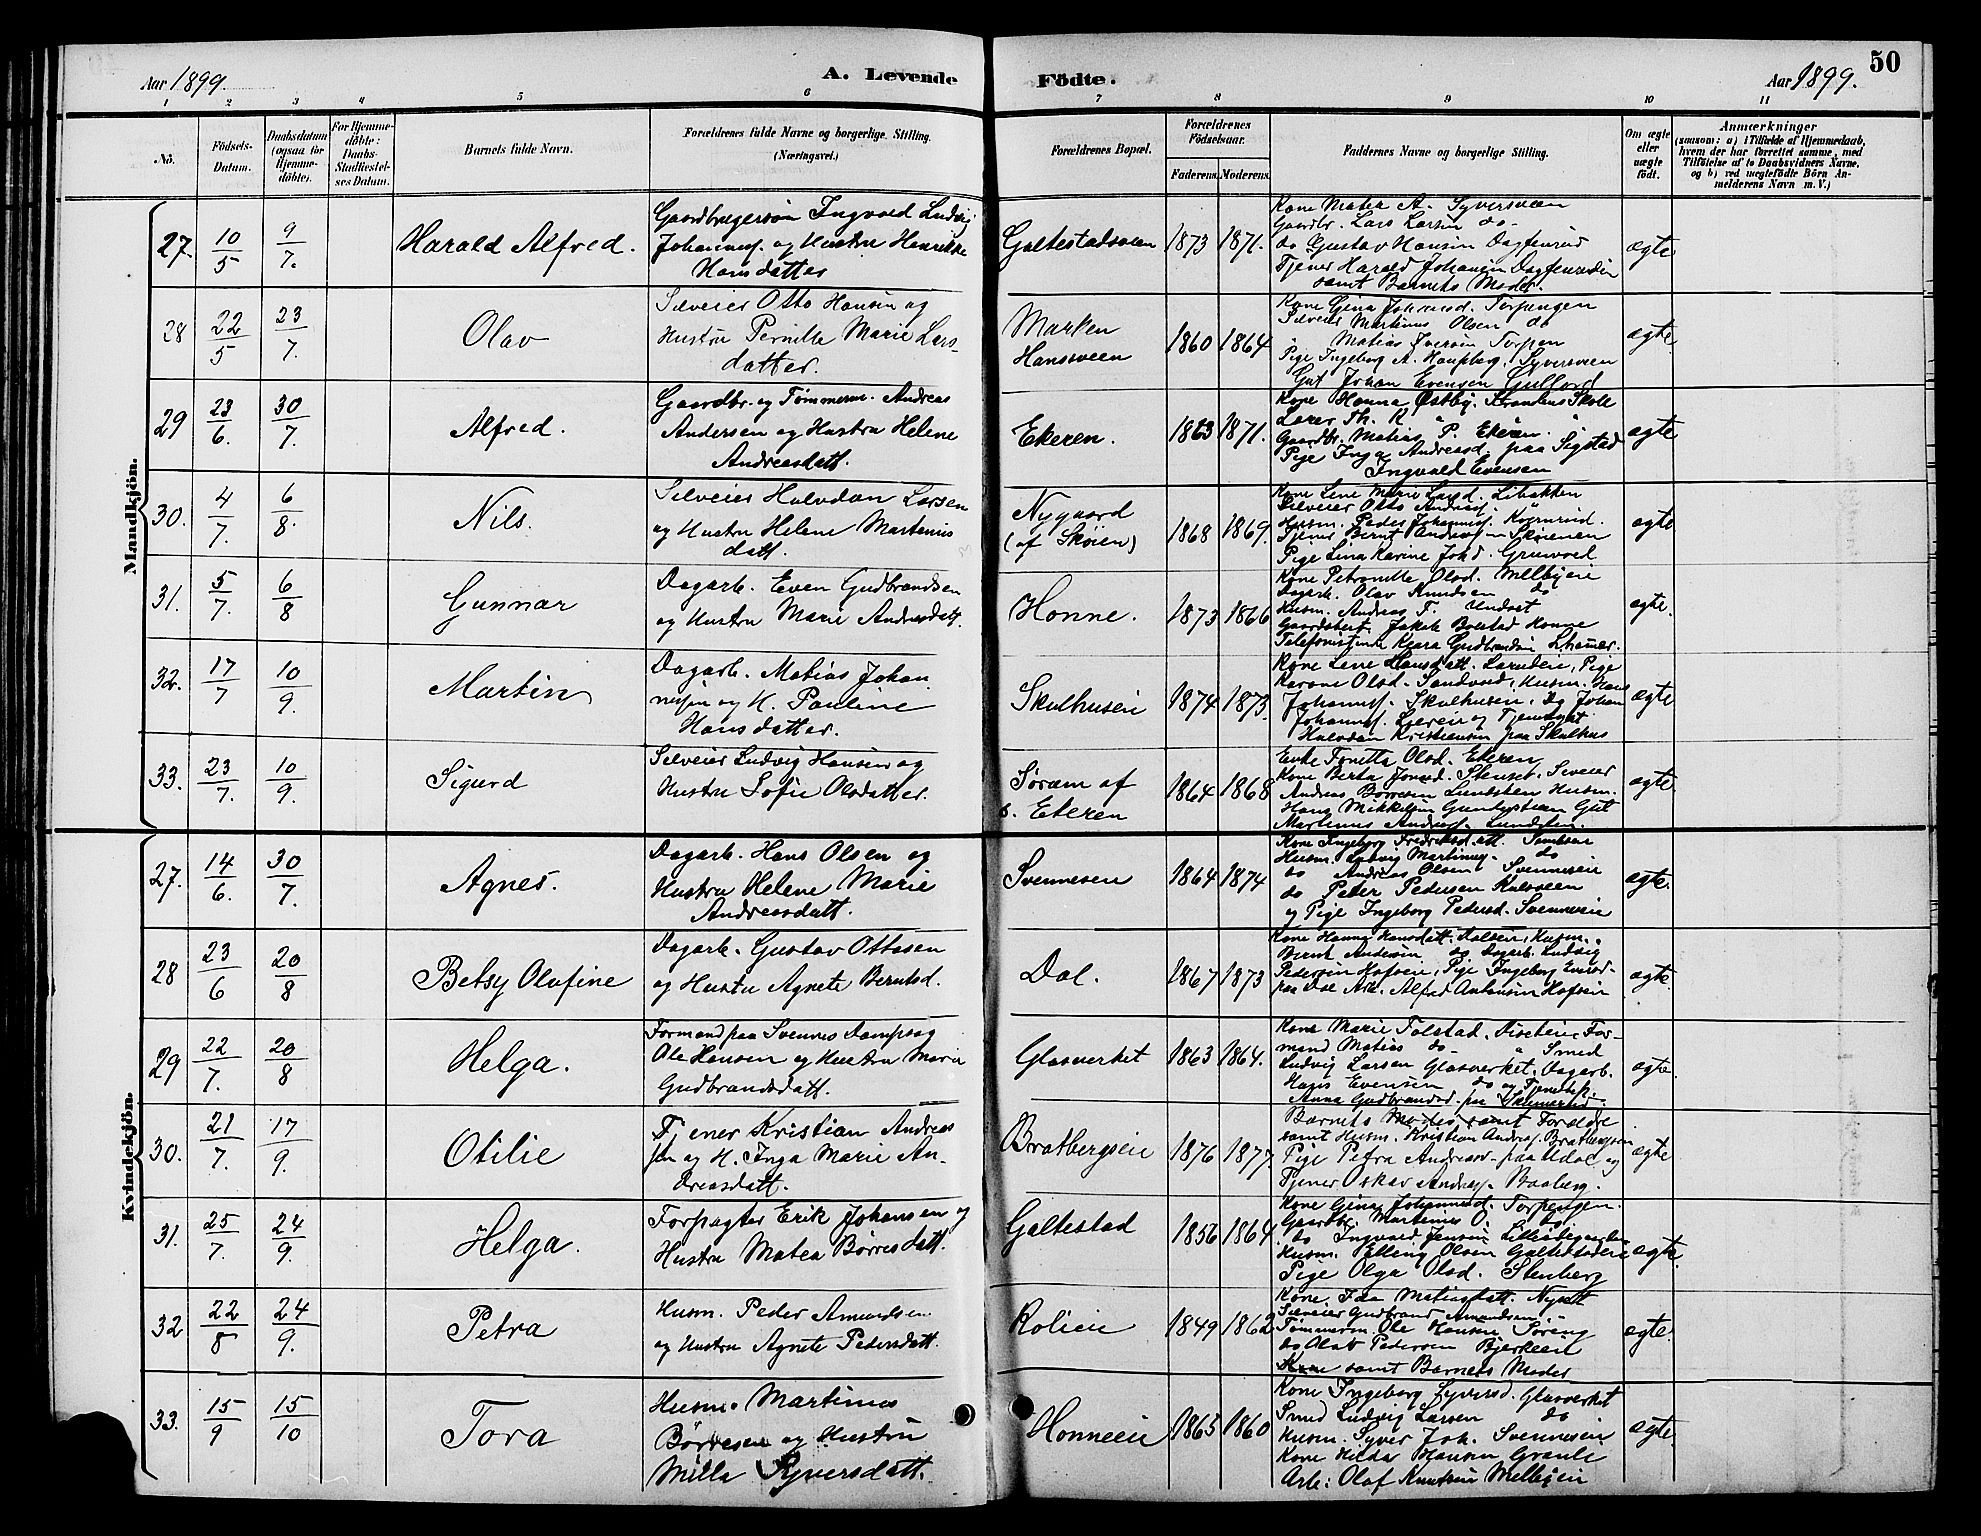 Aar 1899.
A. Levende
Födte.
Aar 1899.
50
1 2 3 4 5 6 7 8 9 10 11
No.
Födsels-
Datum.
Daabsdatum
(ogsaa for
Hjemme-
döbte).
For Hjemme-
döbte:
Daabs-
Stadfæstel-
ses Datum.
Barnets fulde Navn.
Forældrenes fulde Navne og borgerlige Stilling.
(Næringsvei.)
Forældrenes Bopæl.
Forældrenes
Födselsaar.
Faderens. Moderens.
Faddernes Navne og borgerlige Stilling.
Om ægte
eller
uægte
födt.
Anmærkninger
(saasom: a) i Tilfælde af Hjemmedaab,
hvem der har forrettet samme, med
Tilföielse af to Daabsvidners Navne,
og b) ved uægtefödte Börn An-
melderens Navn m. V.)
Mandkjön.
27. 10/5 9/7. Harald Alfred.
Gaardbrugersøn Ingvald Ludvig
Johannesf. og Hustru Henrikke
Hansdatter
Galtestadsveen 1873 1871.
Kone Matea A. Syversveen
Gaardbr. Lars Larsen do
do Gustav Hansen Dagfinrud
Tjener Harald Johansen
samt Barnets Moder.
ægte
28 22/5 23/7. Olav
Selveier Otto Hansen og
Hustru Pernille Marie Lars-
datter.
Marken
Hansveen
1860 1864
Kone Gina Johannesd. Torpengen
Selveier Martinus Olsen do
Matias Iversen Torpen
Pige Ingeborg A. Syversveen
Gut Johan Evensen
ægte.
29 23/6. 30/7. Alfred.
Gaardbr. og Tømmerm. Andreas
Andersen og Hustru Helene
Andreasdatt.
Ekeren. 1863 1871.
Kone Hanna Østby. Skole
Lærer Th. K
Gaardbr. Matias P. Ekeren.
Pige Inga Andreasd. paa Sigstad
Ingvald Evensen
ægte
30. 4/7. 6/8. Nils.
Selveier Halvdan Larsen
og Hustru Helene Martinius
datt.
Nygaard
(af Skøien)
1868 1869.
Kone Lene Marie Larsd. Libakken
Selveier Otto Andreasf.
Husm. Peder Johannesf. Kværnrud.
Tjener Bernt Andreasf.
Pige Lina Karine Johd.
ægte
31. 5/7. 6/8 Gunnar
Dagarb. Even Gudbrandsen
og Hustru Marie Andreasdatt.
Honne. 1873 1866
Kone Petronille Olsd. Melbyeie
Dagarb. Olav Knudsen do
Husm. Andreas T. Undset
Jakob Bolstad Honne
Telefonistinde Klara Gudbrandsen Lhamar.
ægte.
32. 17/7 10/9. Martin
Dagarb. Matias Johan
nessen og H. Pauline
Hansdatter.
Skulhuseie 1874 1873.
Kone Lene Hansdatt. Pige
Karane Olsd. Sandvold, Husm. Hans
Johannesf. Skulhuseie, Dg Johan
Johannesf. og Tjenestgut
Halvdan Kristiansen paa Skulhus
ægte
33. 23/7. 10/9. Sigurd
Selveier Ludvig Hansen og
Hustru Sofie Olsdatter.
Søram af
s. Ekeren
1864 1868
Enke Olsd. Ekeren
Kone Berta Stenset. Seveier
Andreas Børresen Lundsten Husm.
Hans Mikkelsen Gut
Martinus Andreasf. Lundsten.
ægte
Kvindekjön.
27. 14/6. 30/7. Agnes.
Dagarb. Hans Olsen og
Hustru Helene Marie
Andreasdatt.
Svenneseie 1864 1874
Kone Ingeborg Fredriksdatt.
Husm. Ludvig Martinusf. do
do Andreas Olsen Svenneseie
do Peter Pedersen
og Pige Ingeborg Pedersd. Svenneseie
ægte.
28 23/6 20/8 Betsy Olafine
Dagarb. Gustav Ottosen
og Hustru Agnete Berntsd.
Dal. 1867 1873
Kone Hanna Hansdatt. Dalseie, Husm.
Bernt Andersen do Dagarb. Ludvig
Pedersen Hofseie, Pige Ingeborg
paa Dal Arb. Alfred Antonsen Hofseie
ægte.
29 22/7. 20/8 Helga.
Formand paa Svennes Dampsag
Ole Hansen og Hustru Marie
Gudbrandsdatt.
Glasverket 1863 1864.
Kone Marie Tolstad. For-
mand Matias do Smed
Ludvig Larsen Glasverket. Dagarb.
Hans Evensen do og Tjenestep.
Anna Gudbrandsd. paa
ægte.
30. 21/7. 17/9. Otilie
Tjener Kristian Andreas
sen og H. Inga Marie An-
dreasdatt.
Bratbergseie 1876 1877
Barnets samt Forældre
samt Husm. Kristian Andreasf. Bratbergseie
Pige Petra Andreasd. paa Udal og
Tjener Oskar Andreasf. Baaberg.
ægte
31. 25/7. 24/9. Helga.
Forpagter Erik Johansen og
Hustru Matea Børresdatt.
Galtestad 1856 1864
Kone Gina Johannesd. Torpengen.
Gaardbr. Martinius O. do
do Ingvald Jensen
Husm. Elling Olsen
Pige Olga Olsd. Stenberg
ægte.
32 22/8 24/9. Petra
Husm. Peder Amundsen
og Hustru Agnete Pedersdatt.
Rolieie 1849 1862
Kone Ida Matiasdatt.
Selveier Gudbrand Amundsen
Tømmerm. Ole Hansen Søreng
do Olav Pedersen Bjerkeeie
samt Barnets Moder
ægte.
33. 15/9 15/10 Tora
Husm. Martinus
Børresen og Hustru
Milla Syversdatt.
Honneeie 1865 1860
Kone Ingeborg Syversd. Glasverket
Smed Ludvig Larsen do
Husm. Syver Joh. Svenneseie
Kone Hilda Hansen
Arb: Olaf Knutsen Melbyeie
ægte.